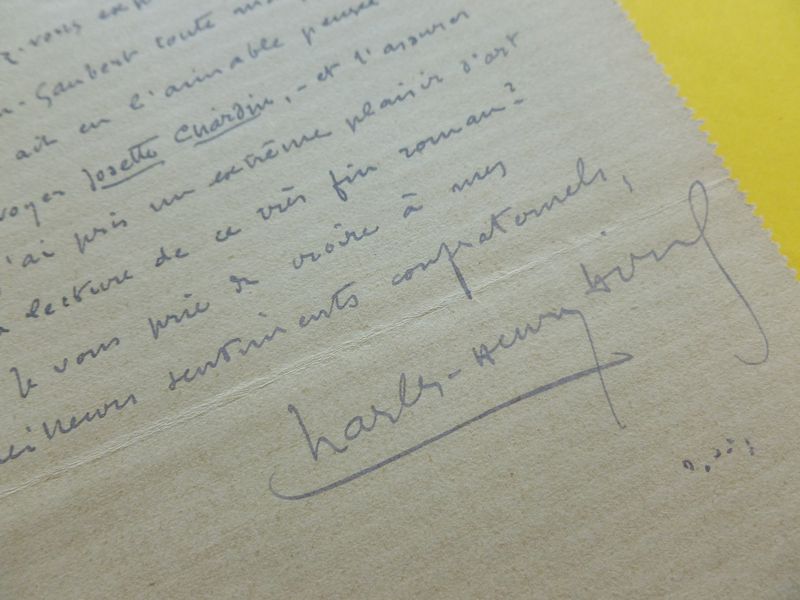 z-vous exp
M. Gaubert toute ma
ait eu l'aimable pensée
voyer Josette Chardin, - et l'assurer
j'ai pris un extrême plaisir d'art
a lecture de ce très fin roman?
Je vous prie de croire à mes
meilleurs sentiments confraternels,
Charles-Henry Hirsch